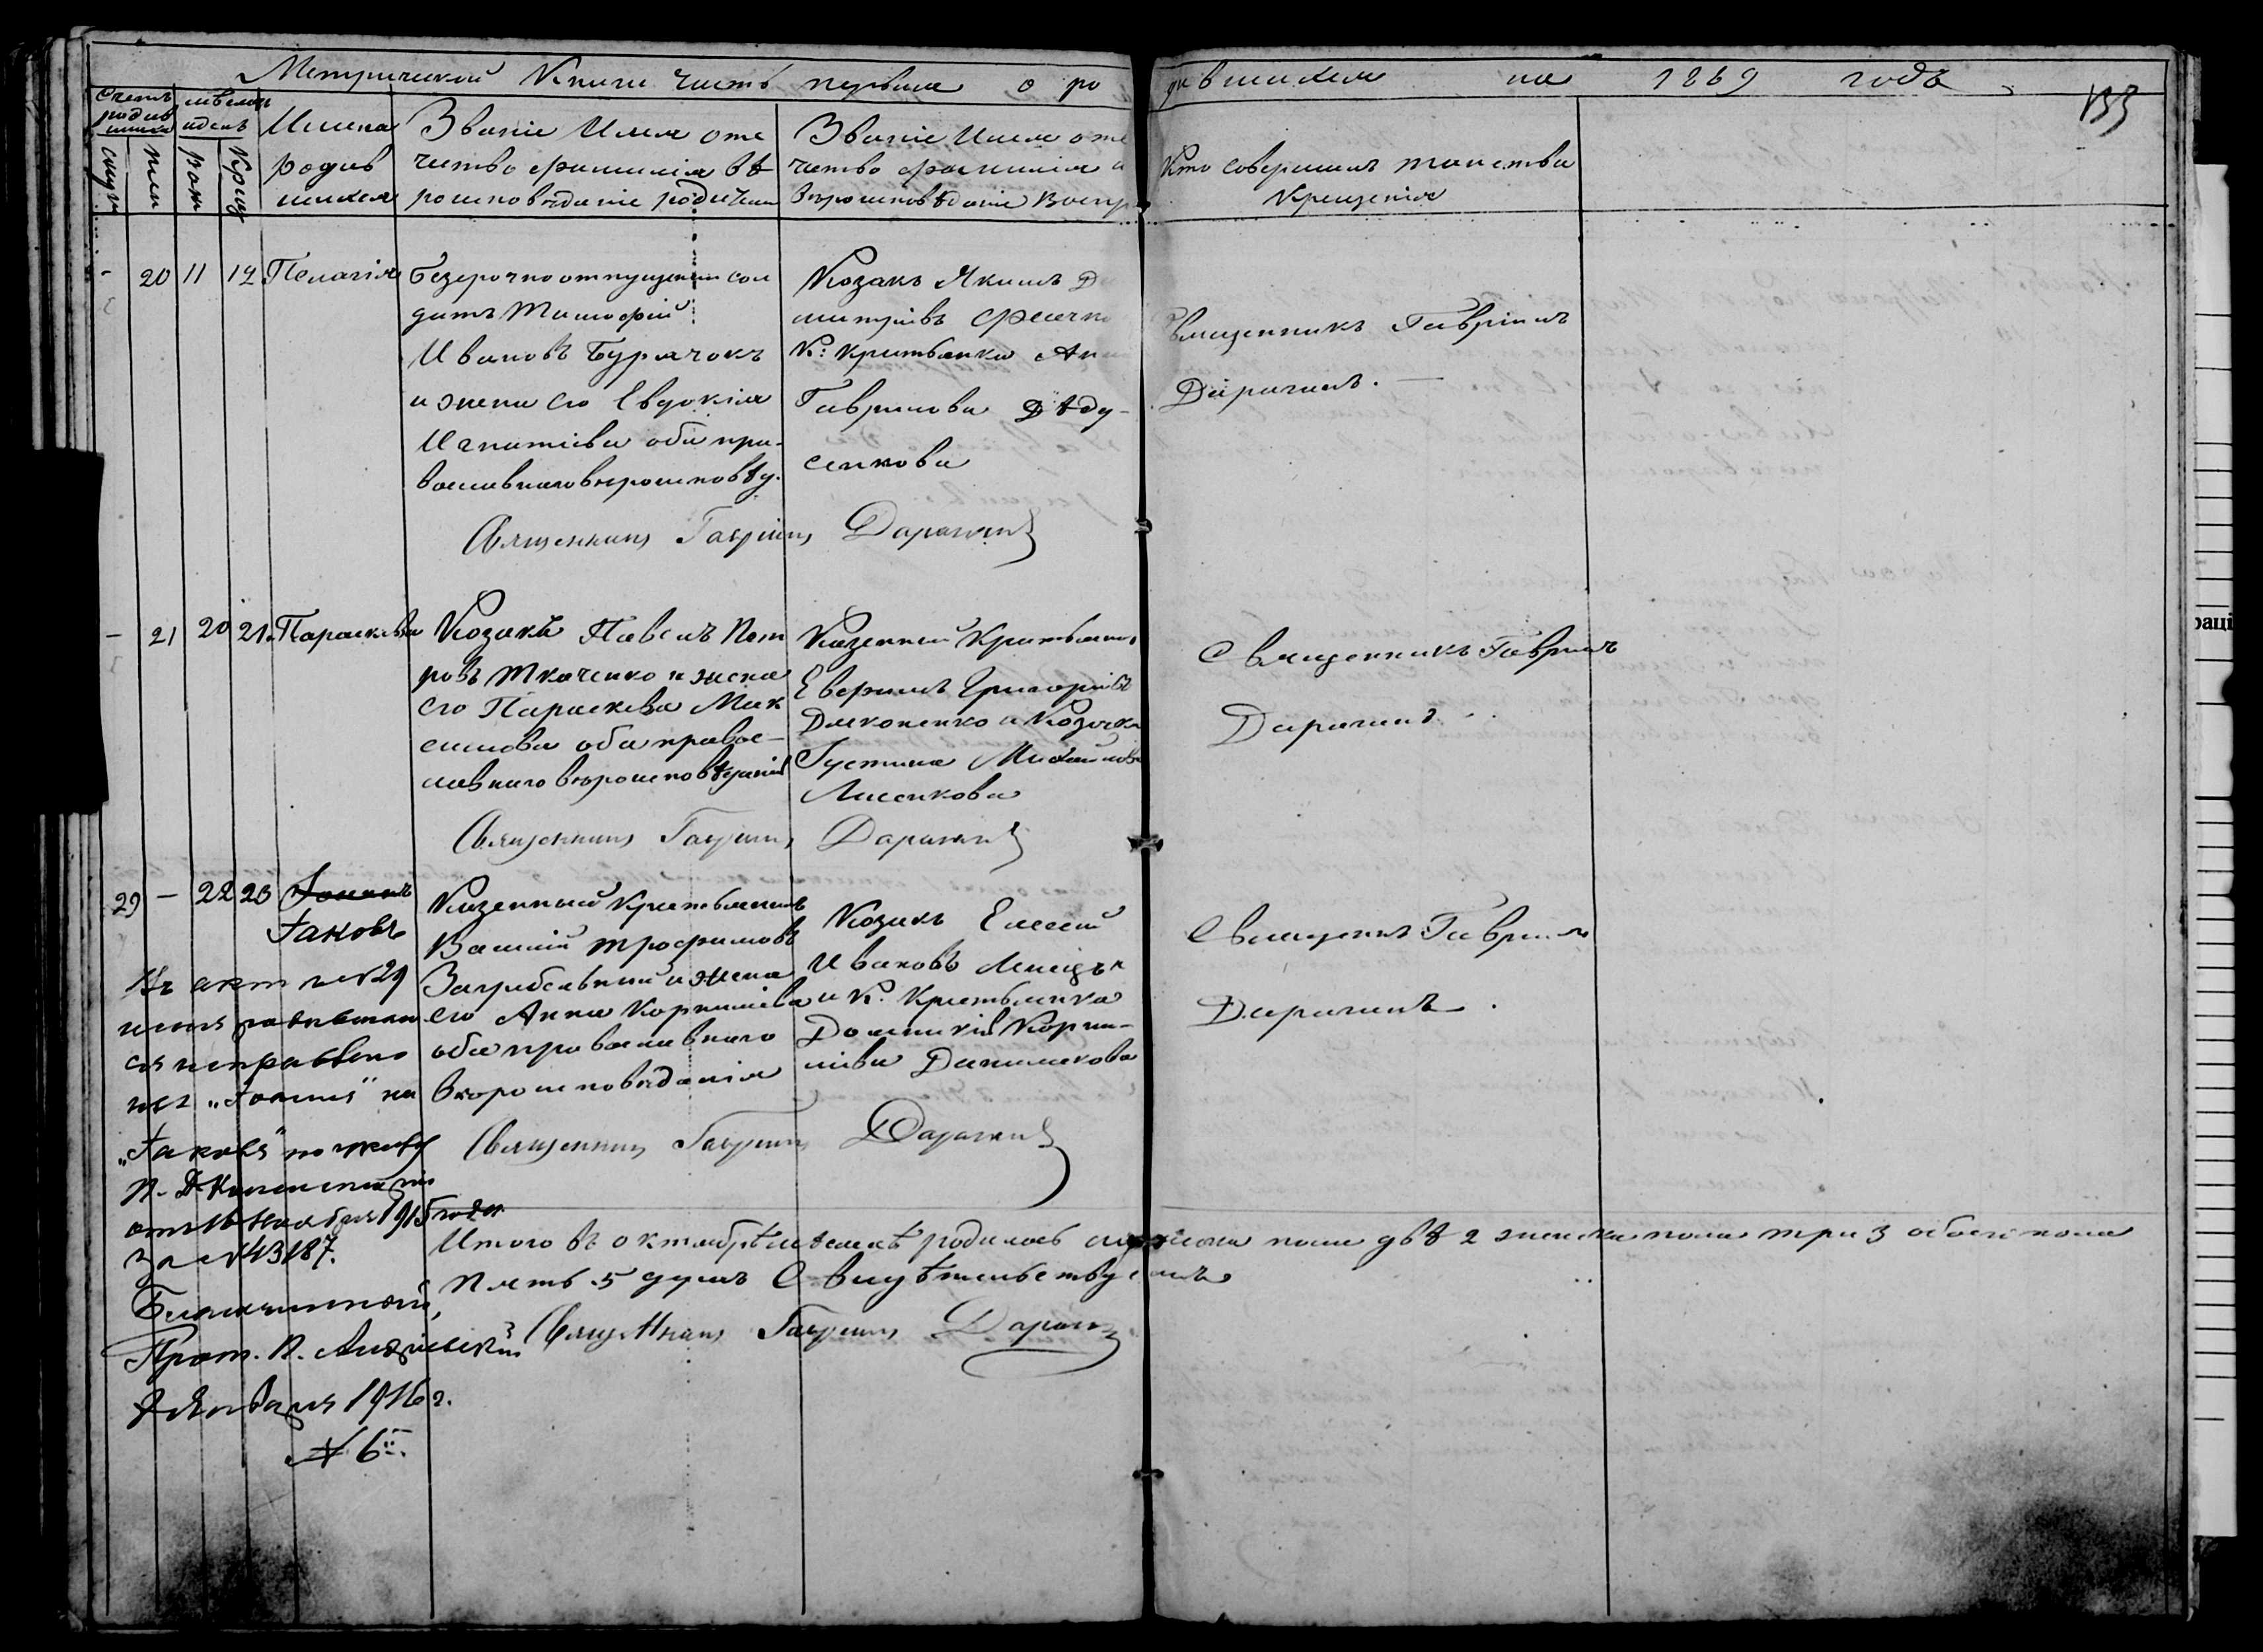 Метрической Книги Часть первая о ро дившихся на 1869 годъ
133
Счетъ родив шихся
мѣсяцъ и день
Имена родив шихся
Званіе Имя оте чество фамилія вѣ роисповѣданіе родителей
Званіе Имя оте чество фамилія и вѣроисповѣданіе Воспр
Кто совершилъ таинства Крещенія
- 20 11 12 Пелагія
безсрочноотпущенный сол
датъ Тимофій
Ивановъ Бурячокъ
и жена его Евдокія
Игнатіева оба пра-
вославнаго вѣроисповѣд.
Козакъ Якимъ Д
митріевъ
К: Крестьянка Ан
Гаврилова Дѣду-
сенкова
Священникъ Гавріилъ
Дарагинъ.
Священникъ Гавріилъ Дарагинъ
- 21 20 21 Параскева
Козакъ Павелъ Пет
ровъ Ткаченко и жена
его Параскева Мак
симова оба правос-
лавнаго вѣроисповѣданія
Казенный Крестьянинъ
Евфимъ Григоріевъ
Дяконенко и Козачка
Густина Михайлова
Лисенкова
Священникъ Гавріилъ
Дарагинъ
Священникъ Гавріилъ Дарагинъ
29 - 22 23 Іоаннъ
Іаковъ
Казенный Крестьянинъ
Василій Трофимовъ
Загребельный и жена
его Анна Корниліева
оба православнаго
вѣроисповѣданія
Козакъ Елисей
Ивановъ
и К. Крестьянка
Домникія Корни-
ліева Данилекова
Священникъ Гавріилъ
Дарагинъ.
Священникъ Гавріилъ Дарагинъ
Въ акт №29
имя родившаго
ся исправлено
изъ „Іоаннъ" на
„Іаковъ" по указу
П. Д. Консисторіи
отъ 16 Ноября 1915 года
за №43187.
Благочинный,
Прот. П.
Января 1916 г.
№ 6.
Итого въ октябрѣ мѣсяцѣ родилось мужеска пола двѣ 2 женска пола три 3 обоего пола
пять 5 душъ Свидѣтельствуемъ
Священникъ Гавріилъ Дарагинъ